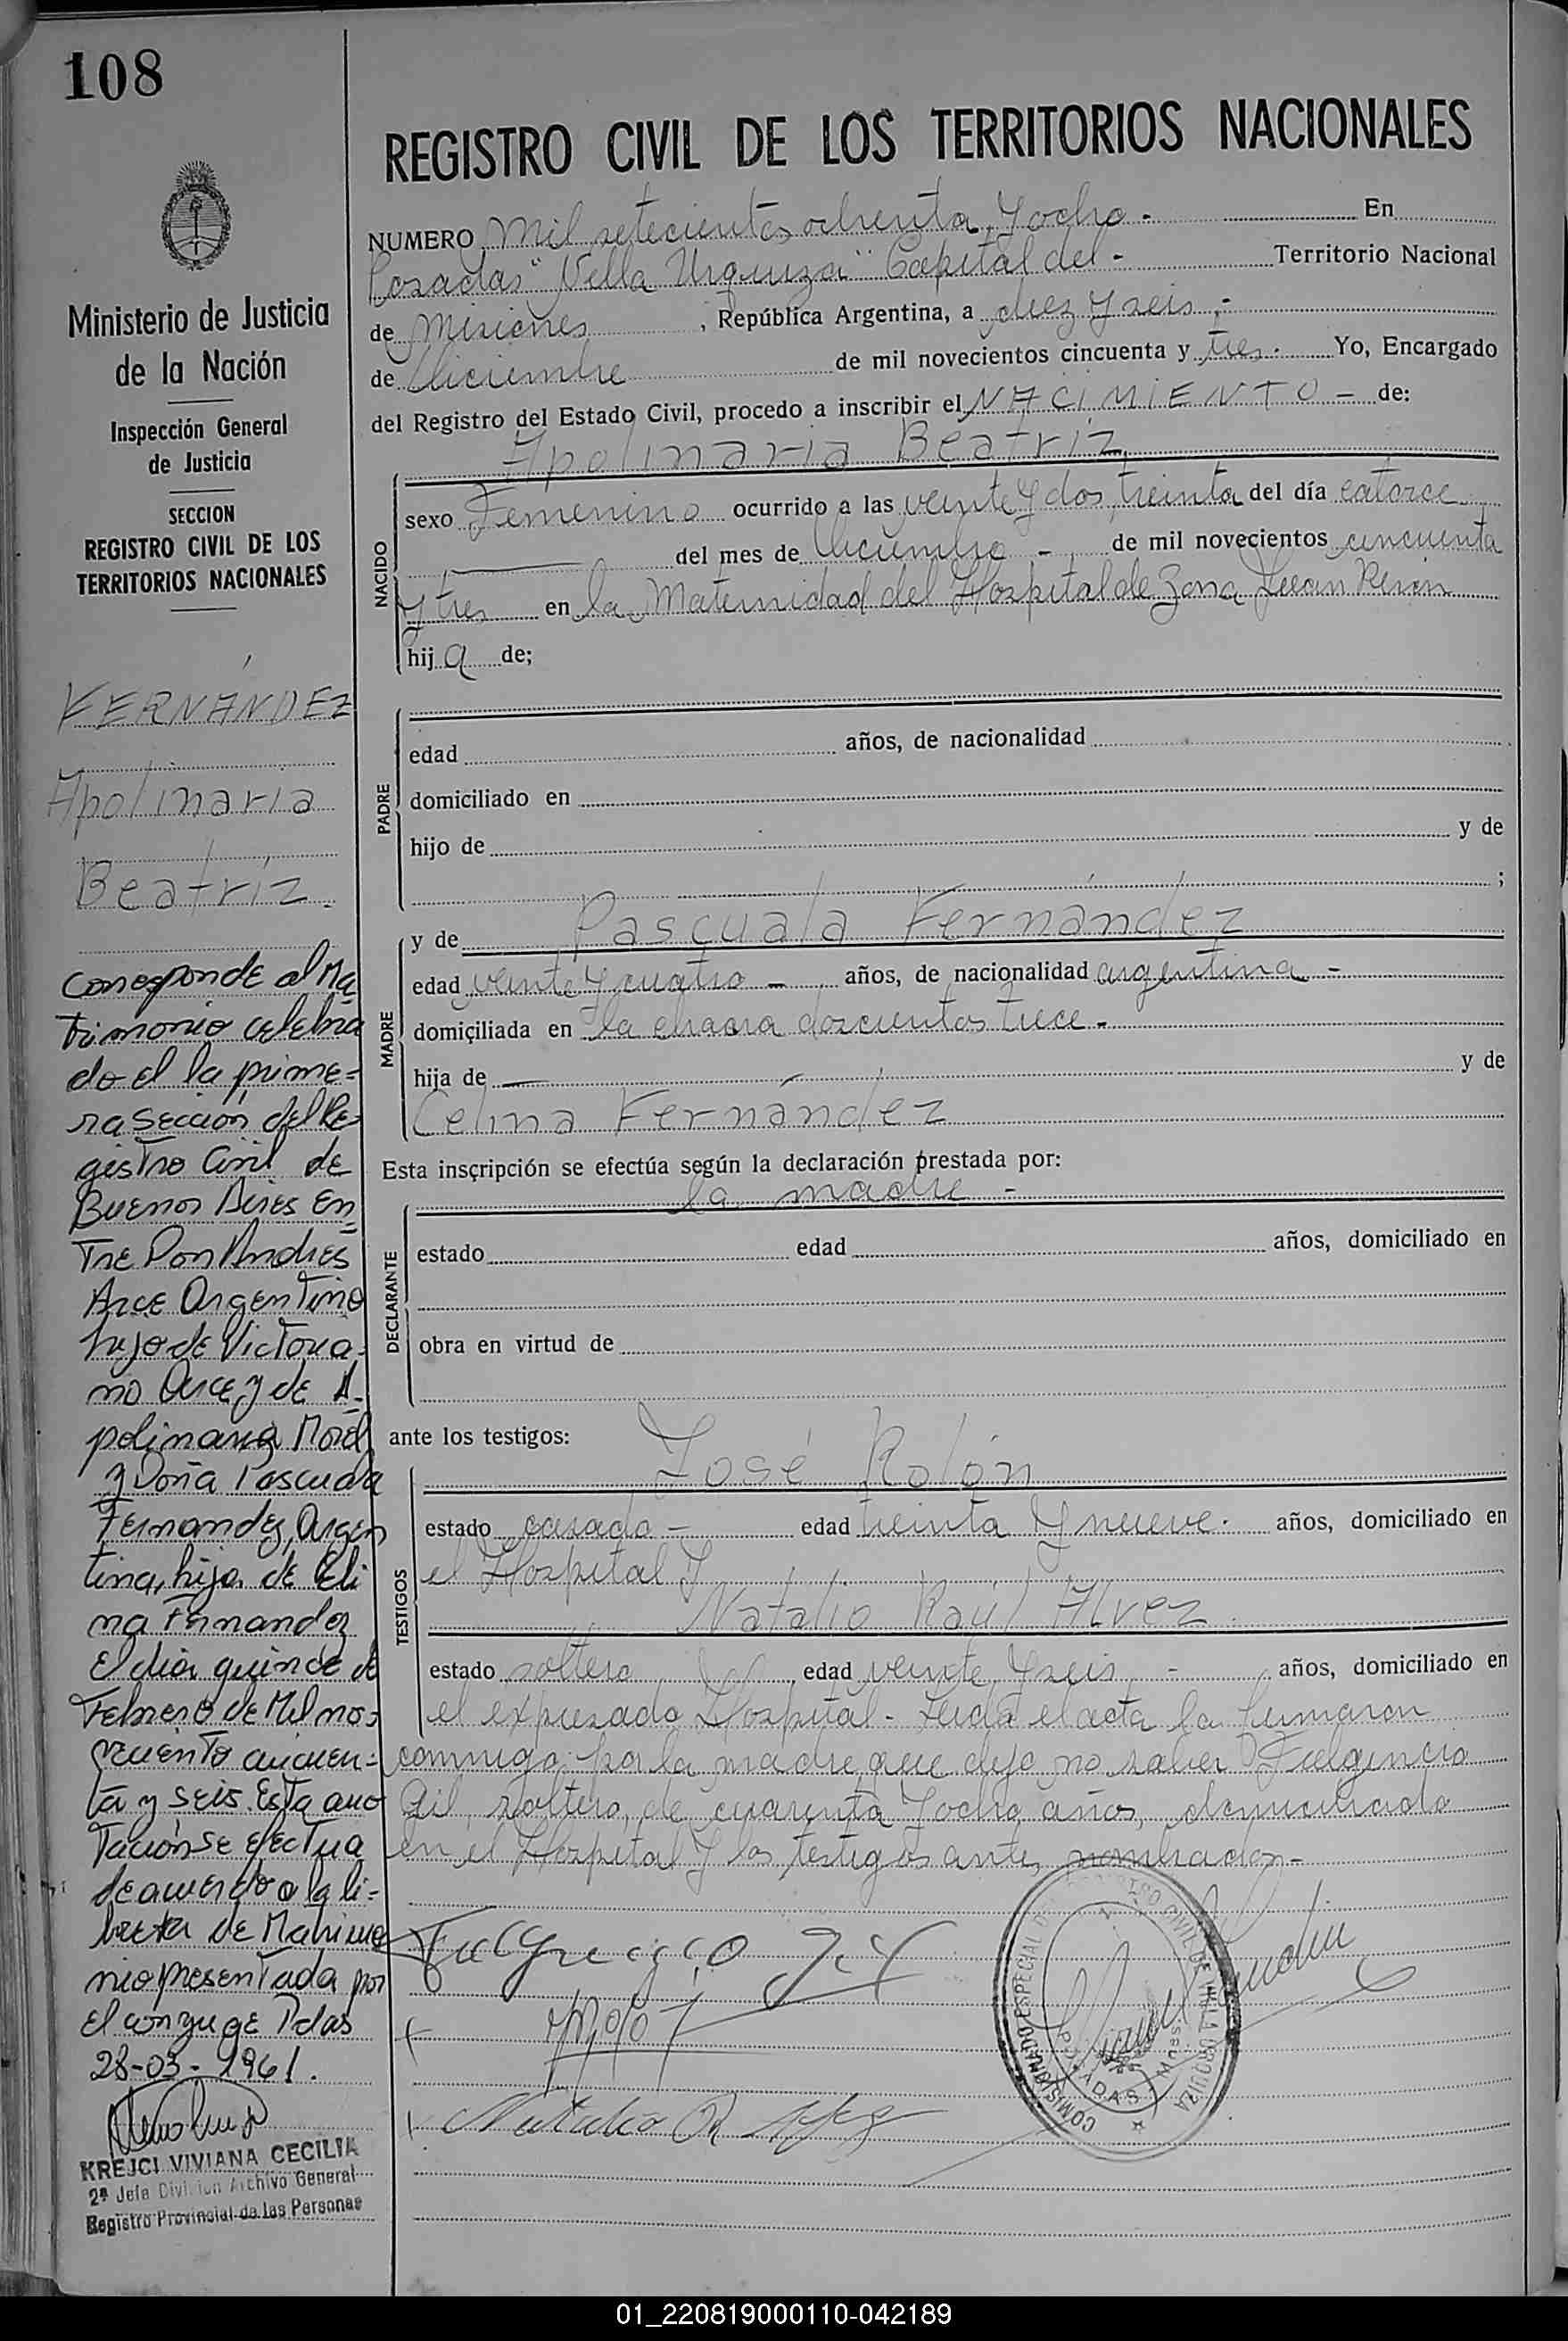 108
Ministerio de Justicia
de la Nación
Inspección General
de Justicia
SECCION
REGISTRO CIVIL DE LOS
TERRITORIOS NACIONALES
FERNÁNDEZ
Apolinaria
Beatríz.
Corresponde al Ma
trimonio celebra
do el la prime=
ra Sección del Re
gistro Civil de
Buenos Aires En
Tre Don Andres
Arce Argentino
hijo de Victoria=
no Arce y de A
polinaria Morel
y Doña Pascuala
Fernandez, Argen
tina, hija de Celi
na Fernandez
El dia quince de
Febrero de Mil no=
veciento cincuen=
ta y seis. Esta ano
Tación se efectua
de acuerdo a la li=
breta de Matrimo
nio presentada por
El conyuge Pdas
28-03-1961.
KREJCI VIVIANA CECILIA
2ª Jefa Division Archivo General
Registro Provincial de las Personas
REGISTRO CIVIL DE LOS TERRITORIOS NACIONALES
NUMERO Mil setecientos ochenta y ocho - En
Posadas "Villa Urquiza" Capital del - Territorio Nacional
de Misiones , República Argentina, a diez y seis -
de Diciembre de mil novecientos cincuenta y tres. Yo, Encargado
del Registro del Estado Civil, procedo a inscribir el NACIMIENTO - de:
Apolinaria Beatríz
NACIDO
sexo Femenino ocurrido a las veinte y dos, treinta del día catorce
del mes de Diciembre - de mil novecientos cincuenta
y tres en la Maternidad del Hospital de Zona Juan Perón
hij a de;
PADRE
edad años, de nacionalidad
domiciliado en
hijo de y de
;
MADRE
y de Pascuala Fernández
edad veinte y cuatro - años, de nacionalidad argentina -
domiciliada en la chacra doscientos trece -
hija de — y de
Celina Fernández
Esta inscripción se efectúa según la declaración prestada por:
la madre -
DECLARANTE
estado edad años, domiciliado en
obra en virtud de
ante los testigos: José Rolón
TESTIGOS
estado casado - edad treinta y nueve. años, domiciliado en
el Hospital y
Natalio Raúl Alvez
estado soltero edad veinte y seis - años, domiciliado en
el expresado Hospital - Leida el acta la firmaron
conmigo por la madre que dijo no saber Fulgencio
Gil, soltero, de cuarenta y ocho años, domiciliado
en el Hospital y los testigos antes nombrados-
Fulgencio Gil
Natalio R Alvez
COMISIONADO ESPECIAL DEL REGISTRO CIVIL DE VILLA URQUIZA
POSADAS Mnes.
01_220819000110-042189